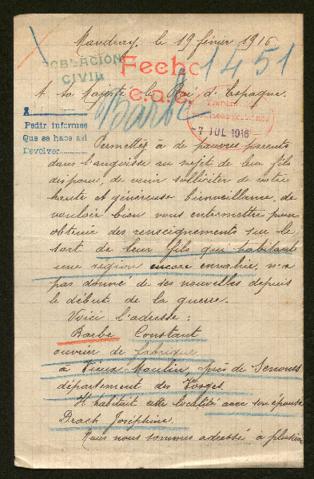 Mandray, le 19 février 1916
POBLACIÓN
CIVIL
Fecho
c.a.c.
1451
A sa Majesté le Roi d'Espagne.
Barbe
7 JUL 1916
Pedir informes
Que se hace así
Devolver
Permettez à de pauvres parents
dans l'angoisse au sujet de leur fils
disparu, de venir solliciter de votre
haute et généreuse bienveillance, de
vouloir bien vous entremettre pour
obtenir des renseignements sur le
sort de leur fils qui habitant
une région encore envahie, n'a
pas donné de ses nouvelles depuis
le début de la guerre.
Voici l'adresse:
Barbe Constant
ouvrier de fabrique
à Vieux-Moulin, près de Senones
département des Vosges
Il habitait cette localité avec son épouse
Joséphine.
Nous nous sommes adressé à plusieurs